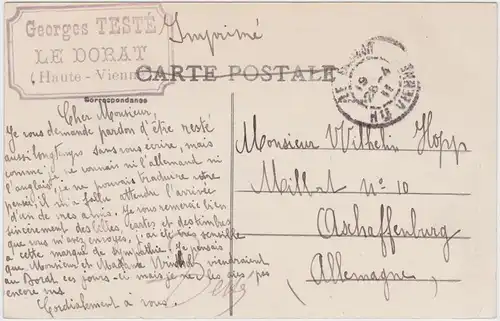 Georges TESTÉ
LE DORAT
(Haute-Vienne)
Imprimé
CARTE POSTALE
Correspondance
Cher Monsieur,
Je vous demande pardon d'être resté
aussi longtemps sans vous écrire, mais
comme je ne connais ni l'allemand ni
l'anglais, je ne pouvais traduire votre
pensée, il m'a fallu attendre l'arrivée
d'un de mes amis. Je vous remercie bien
sincèrement des belles cartes et des timbres
que vous m'avez envoyés, j'ai été très sensible
à cette marque de sympathie. Je pensais
que Monsieur et Madame viendraient
au Dorat ces jours-ci mais je ne les ai pas
encore vus.
Cordialement à vous.
Testé
LE DORAT
19
28-4
11
HTE VIENNE
Monsieur Wilhelm Hopp
Millbt. No 10
Aschaffenburg
Allemagne